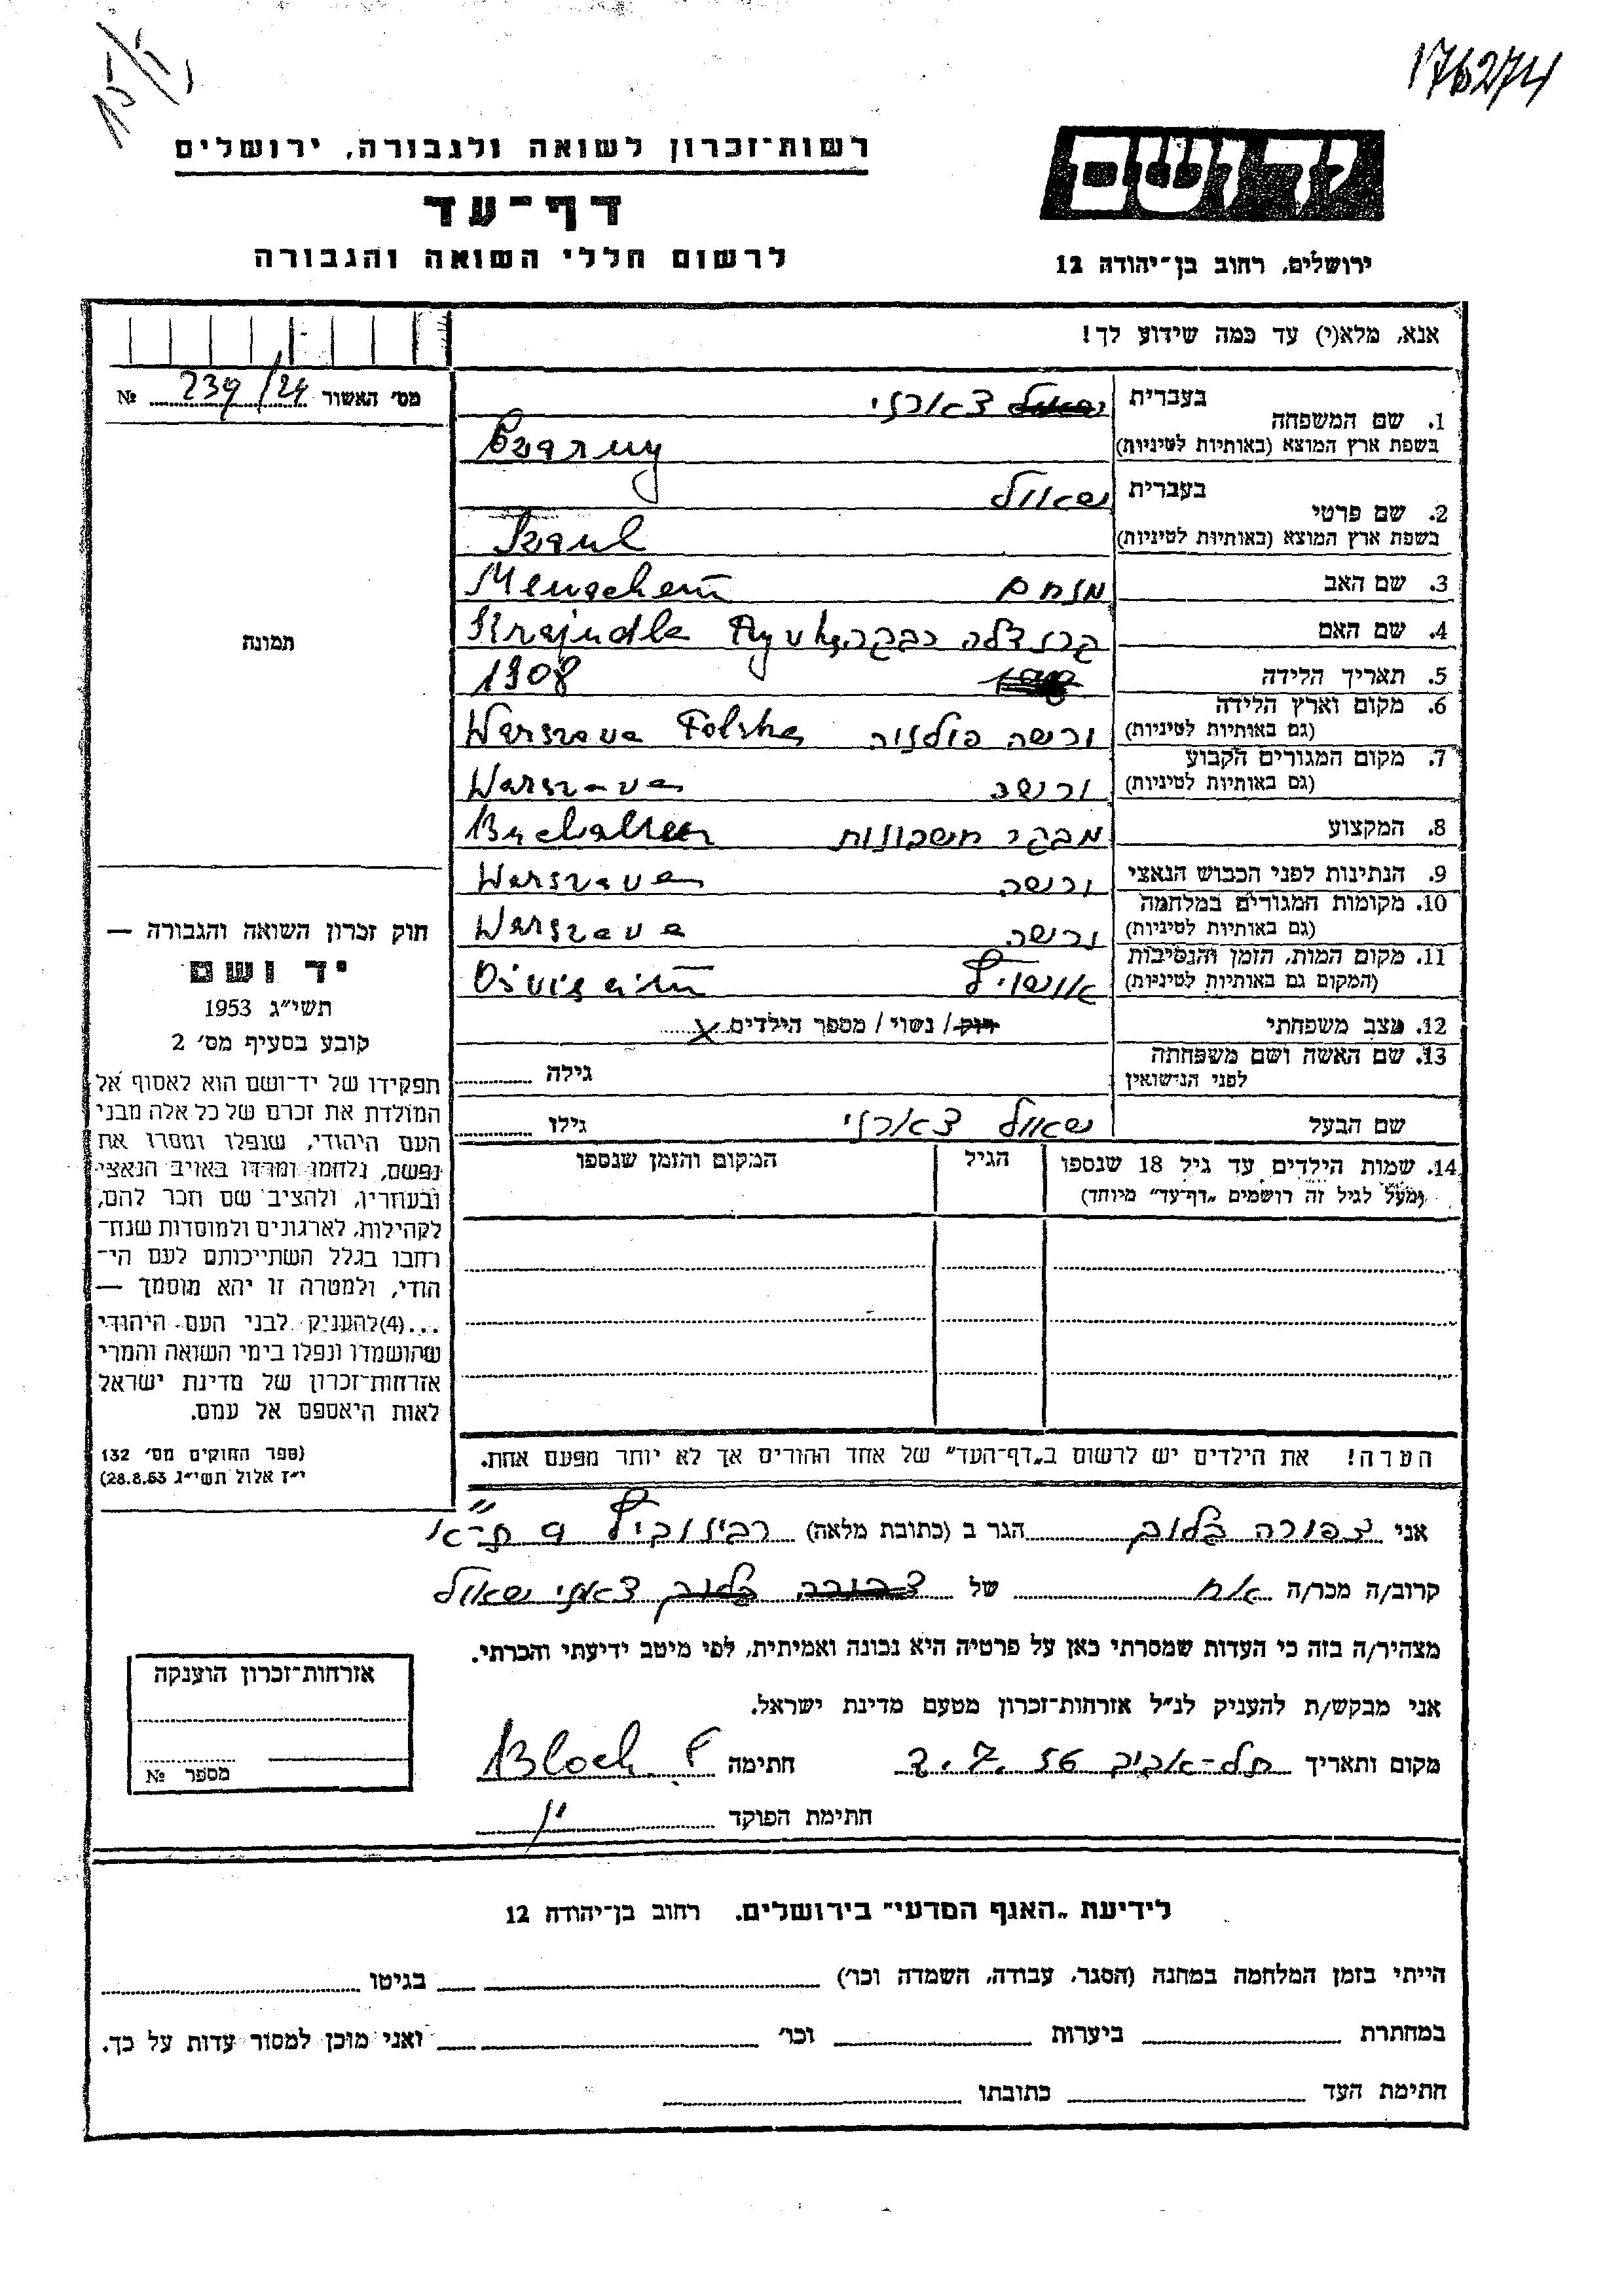 176274
יד ושם
רשות־זכרון לשואה ולגבורה, ירושלים
דף־עד
לרשום חללי השואה והגבורה
ירושלים, רחוב בן־יהודה 12
אנא, מלא(י) עד כמה שידוע לך!
מס׳ האשור 239/24 №
1. שם המשפחה
בעברית צארני
בשפת ארץ המוצא (באותיות לטיניות) Czarny
2. שם פרטי
בעברית שאול
בשפת ארץ המוצא (באותיות לטיניות) Szaul
3. שם האב מנחם Menachem
4. שם האם רבקה Krajndla
5. תאריך הלידה 1908
6. מקום וארץ הלידה
(גם באותיות לטיניות) ורשה פולניה Warszava Polska
7. מקום המגורים הקבוע
(גם באותיות לטיניות) ורשה Warszava
8. המקצוע מבקר חשבונות
9. הנתינות לפני הכבוש הנאצי ורשה Warszava
10. מקומות המגורים במלחמה
(גם באותיות לטיניות) ורשה Warszava
11. מקום המות, הזמן והנסיבות
(המקום גם באותיות לטיניות)
12. מצב משפחתי רוק / נשוי / מספר הילדים X
13. שם האשה ושם משפחתה
לפני הנישואין גילה
שם הבעל שאול צארני גילו
14. שמות הילדים עד גיל 18 שנספו הגיל המקום והזמן שנספו
(מעל לגיל זה רושמים „דף־עד״ מיוחד)
הערה! את הילדים יש לרשום ב„דף־העד״ של אחד ההורים אך לא יותר מפעם אחת.
תמונה
חוק זכרון השואה והגבורה —
יד ושם
תשי״ג 1953
קובע בסעיף מס׳ 2
תפקידו של יד־ושם הוא לאסוף אל
המולדת את זכרם של כל אלה מבני
העם היהודי, שנפלו ומסרו את
נפשם, נלחמו ומרדו באויב הנאצי
ובעוזריו, ולהציב שם וזכר להם,
לקהילות, לארגונים ולמוסדות שנח־
רבו בגלל השתייכותם לעם הי־
הודי, ולמטרה זו יהא מוסמך —
...(4)להעניק לבני העם היהודי
שהושמדו ונפלו בימי השואה והמרי
אזרחות־זכרון של מדינת ישראל
לאות היאספם אל עמם.
(ספר החוקים מס׳ 132
י״ז אלול תשי״ג 28.8.53)
אני צפורה בלוך הגר ב (כתובת מלאה) 9 ת־א
קרוב/ה מכר/ה אח של שאול
מצהיר/ה בזה כי העדות שמסרתי כאן על פרטיה היא נכונה ואמיתית, לפי מיטב ידיעתי והכרתי.
אני מבקש/ת להעניק לנ״ל אזרחות־זכרון מטעם מדינת ישראל.
מקום ותאריך תל-אביב 2.7.56 חתימה Bloch
חתימת הפוקד
אזרחות־זכרון הוענקה
מספר №
לידיעת „האגף המדעי״ בירושלים. רחוב בן־יהודה 12
הייתי בזמן המלחמה במחנה (הסגר, עבודה, השמדה וכו׳) בגיטו
במחתרת ביערות וכו׳ ואני מוכן למסור עדות על כך.
חתימת העד כתובתו